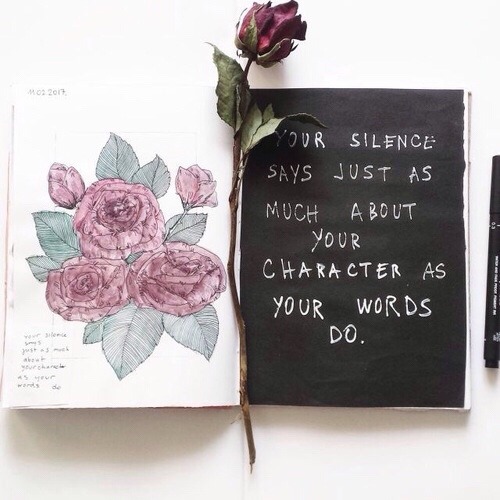 11.02.2017.
your silence
says
just as much
about
your character
as your
words do
YOUR SILENCE
SAYS JUST AS
MUCH ABOUT
YOUR
CHARACTER AS
YOUR WORDS
DO.